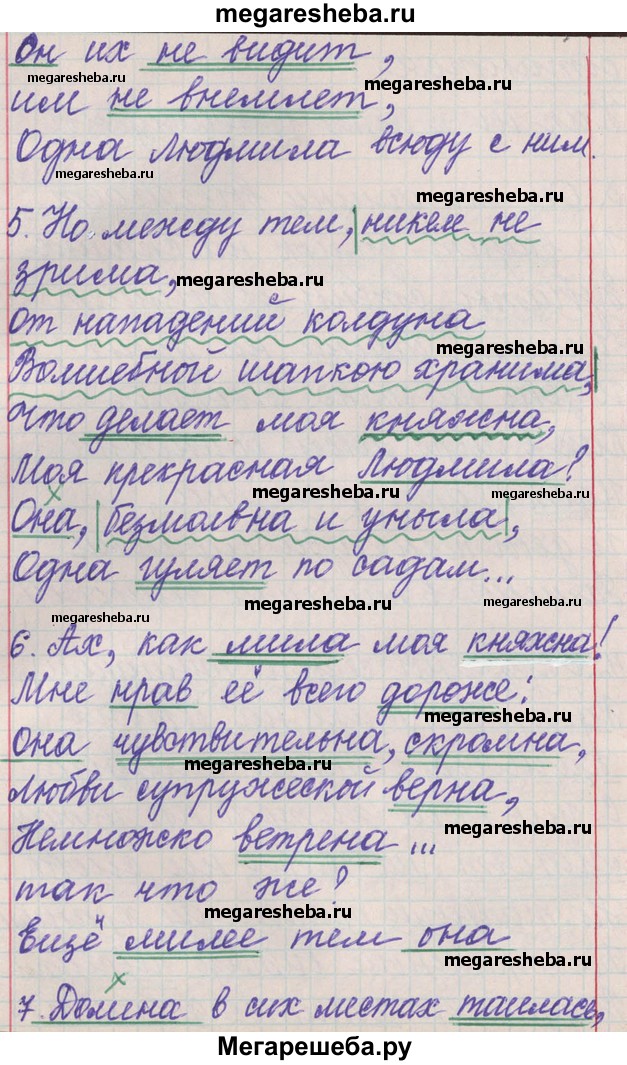 megaresheba.ru
Он их не видит,
megaresheba.ru
megaresheba.ru
им не внемлет,
megaresheba.ru
Одна Людмила всюду с ним.
megaresheba.ru
megaresheba.ru
5. Но между тем, никем не
зрима, megaresheba.ru
От нападений колдуна
megaresheba.ru
Волшебной шапкою хранима,
Что делает моя княжна,
megaresheba.ru
Моя прекрасная Людмила?
megaresheba.ru
Она, безмолвна и уныла,
Одна гуляет по садам...
megaresheba.ru
megaresheba.ru
megaresheba.ru
6. Ах, как мила моя княжна!
Мне нрав её всего дороже:
megaresheba.ru
Она чувствительна, скромна,
megaresheba.ru
Любви супружеской верна,
megaresheba.ru
Немножко ветрена...
так что же?
megaresheba.ru
Ещё милее тем она
megaresheba.ru
7. Долина в сих местах таилась,
Мегарешеба.ру